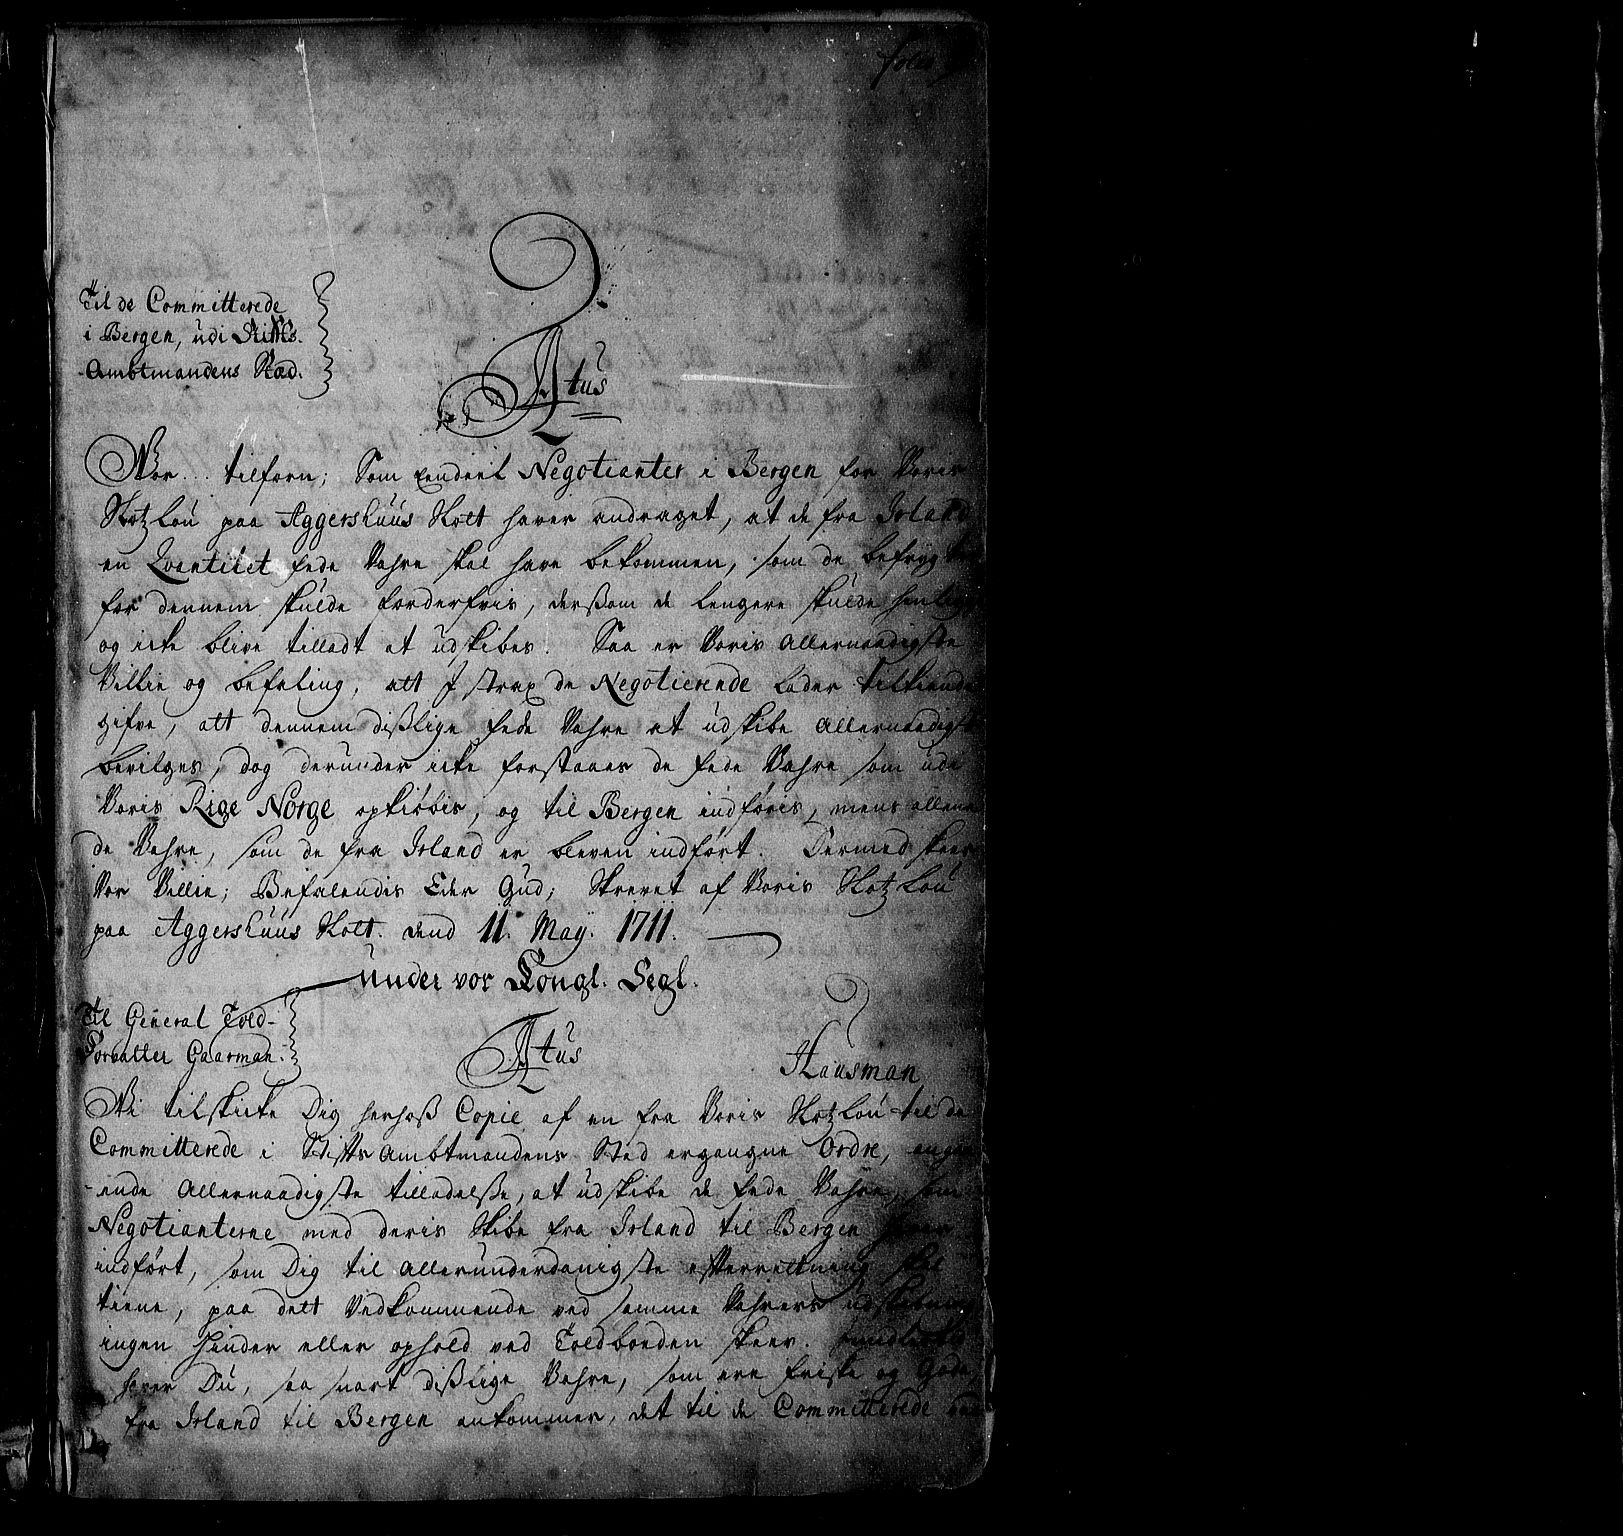 folio
Til de Committerede
i Bergen, udi Stifts-
Ambtmandens Stæd.
Atus
Vor... tilforn; Som endeel Negotianter i Bergen for Voris
SlotzLou paa Aggershuus Slott haver andraget, at de fra Irland
en Qvantitet fede Vahre skal have bekommen, som de befrygter
for dennem skulde forderfvis, dersom de lengere skulde henligge
og icke blive tilladt at udskibes. Saa er Voris Allernaadigste
Villie og befaling, att I strax de Negotierende lader tilkiende
gifve, att dennem dißlige fede Vahre at udskibe Allernaadigst
bevilges, dog derunder icke forstaaes de fede Vahre som udi
Voris Rige Norge opkiøbis, og til Bergen indføris, mens alleene
de Vahre, som de fra Irland er bleven indført. Dermed skeer
Vor Villie; Befalendis Eder Gud; Skrevet af Voris SlotzLou
paa Aggershuus Slott. dend 11. Maÿ. 1711.
Under vor Kongl. Segl.
Til General Told-
Forvalter Gaarman.
Atus
Hausman
Vi tilskicke Dig herhoß Copie af en fra Voris SlotzLou til de
Committerede i StiftsAmbtmandens Sted ergangne Ordre, angaa-
ende Allernaadigste tilladelße, at udskibe de fede Vahre, som
Negotianterne med deris Skibe fra Irland til Bergen hafver
indført, som Dig til Allerunderdanigste efterrettning skal
tiene, paa dett Vedkommende ved samme Vahrers udskibning
ingen hinder eller ophold ved Toldboeden skeer.
haver Du, saa snart dißlige Vahre, som ere friske og Gode,
fra Irland til Bergen ankommer, det til de Committerede